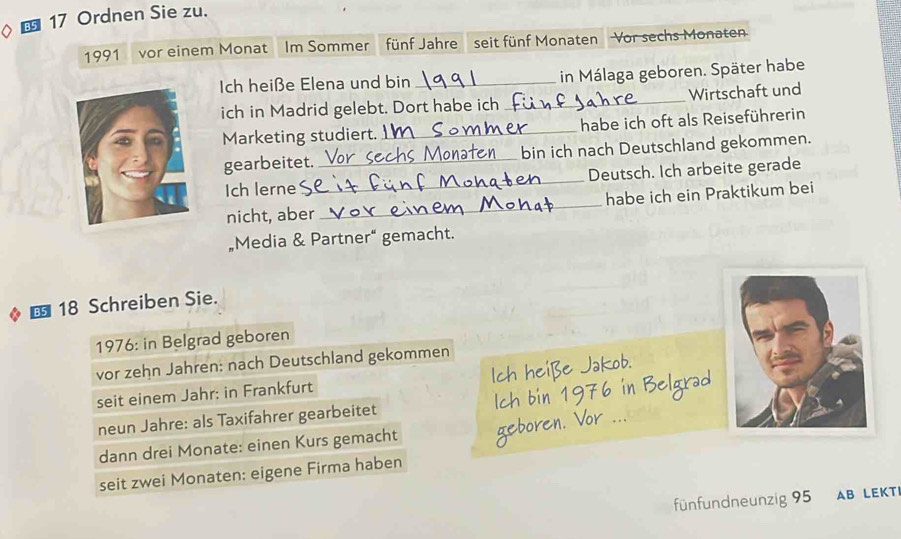 B5 17 Ordnen Sie zu.
1991 vor einem Monat Im Sommer fünf Jahre seit fünf Monaten Vor sechs Monaten
Ich heiße Elena und bin 1991 in Málaga geboren. Später habe
ich in Madrid gelebt. Dort habe ich fünf Jahre Wirtschaft und
Marketing studiert. Im Sommer habe ich oft als Reiseführerin
gearbeitet. Vor sechs Monaten bin ich nach Deutschland gekommen.
Ich lerne seit fünf Monaten Deutsch. Ich arbeite gerade
nicht, aber vor einem Monat habe ich ein Praktikum bei
„Media & Partner“ gemacht.
B5 18 Schreiben Sie.
1976: in Belgrad geboren
vor zehn Jahren: nach Deutschland gekommen
seit einem Jahr: in Frankfurt
neun Jahre: als Taxifahrer gearbeitet
dann drei Monate: einen Kurs gemacht
seit zwei Monaten: eigene Firma haben
Ich heiße Jakob.
Ich bin 1976 in Belgrad
geboren. Vor ...
fünfundneunzig 95 AB LEKTI